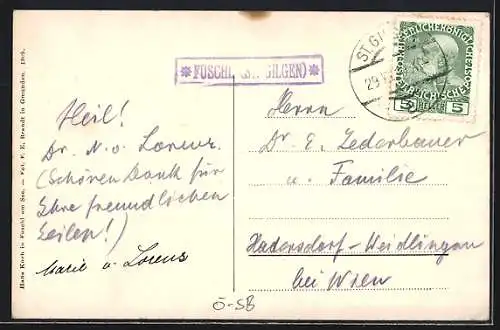 Hans Knoch in Fuschl am See. — Vot. F. E. Brandt in Gmunden. 1909.
✻ FUSCHL (ST. GILGEN) ✻
ST. GI
29
5 HELLER 5
Heil!
Dr. N. v. Lorenz.
(Schönen Dank für
Ihre freundlichen
Zeilen!)
Marie v. Lorenz
Herrn
Dr. E. Zederbauer
u. Familie
Hadersdorf-Weidlingau
bei Wien
Ö-SB